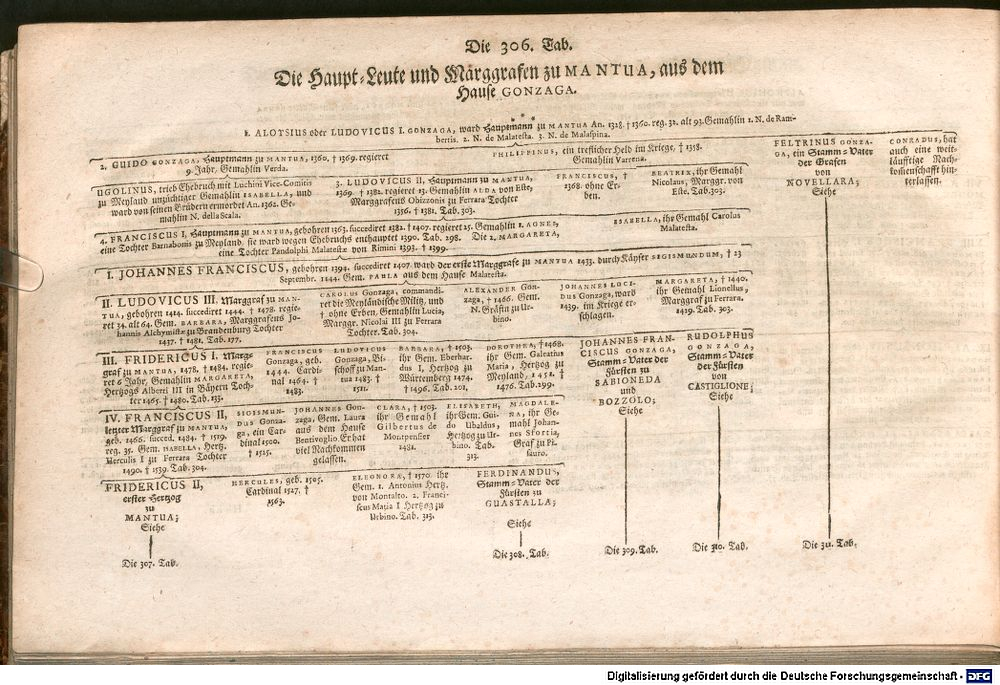 Die 306. Tab.
Die Haupt-Leute und Marggrafen zu MANTUA, aus dem
Hause GONZAGA.
1. ALOYSIUS oder LUDOVICUS I. GONZAGA, ward Hauptmann zu MANTUA An. 1328. † 1360. reg. 32. alt 93. Gemahlin 1. N. de Ram-
bertis. 2. N. de Malatesta. 3. N. de Malaspina.
2. GUIDO GONZAGA, Hauptmann zu MANTUA, 1360. † 1369. regieret
9. Jahr. Gemahlin Verda.
PHILIPPINUS, ein trefflicher Held im Kriege, † 1358.
Gemahlin Varrena.
FELTRINUS GONZA-
GA, ein Stamm-Vater
der Grafen
von
NOVELLARA;
Siehe
CONRADUS, hat
auch eine weit-
läufftige Nach-
kommenschafft hin-
terlassen.
UGOLINUS, trieb Ehebruch mit Luchini Vice-Comitis
zu Meyland unzüchtiger Gemahlin ISABELLA, und
ward von seinen Brüdern ermordet An. 1362. Ge-
mahlin N. della Scala.
3. LUDOVICUS II, Hauptmann zu MANTUA,
1369. † 1382. regieret 13. Gemahlin ALDA von Este,
Marggrafens Obizzonis zu Ferrara Tochter
1356. † 1381. Tab. 303.
FRANCISCUS, †
1368. ohne Er-
ben.
BEATRIX, ihr Gemahl
Nicolaus, Marggr. von
Este. Tab. 303.
4. FRANCISCUS I, Hauptmann zu MANTUA, gebohren 1363. succediret 1382. † 1407. regieret 25. Gemahlin 1. AGNES,
eine Tochter Barnabonis zu Meyland, sie ward wegen Ehebruchs enthauptet 1390. Tab. 298. Die 2. MARGARETA,
eine Tochter Pandolphi Malatestæ von Rimini 1393. † 1399.
ISABELLA, ihr Gemahl Carolus
Malatesta.
I. JOHANNES FRANCISCUS, gebohren 1394. succediret 1407. ward der erste Marggrafe zu MANTUA 1433. durch Käyser SIGISMUNDUM, † 23
Septembr. 1444. Gem. PAULA aus dem Hause Malatesta.
II. LUDOVICUS III. Marggraf zu MAN-
TUA, gebohren 1414. succediret 1444. † 1478. regie-
ret 34. alt 64. Gem. BARBARA, Marggrafens Jo-
hannis Alchymistæ zu Brandenburg Tochter
1437. † 1481. Tab. 177.
CAROLUS Gonzaga, commandi-
ret die Meyländische Militz, und
† ohne Erben, Gemahlin Lucia,
Marggr. Nicolai III zu Ferrara
Tochter. Tab. 304.
ALEXANDER Gon-
zaga, † 1466. Gem.
N. Gräfin zu Ur-
bino.
JOHANNES LUCI-
DUS Gonzaga, ward
1439. im Kriege er-
schlagen.
MARGARETA; † 1440.
ihr Gemahl Lionellus,
Marggraf zu Ferrara.
1439. Tab. 303.
III. FRIDERICUS I. Marg-
graf zu MANTUA, 1478. † 1484. regie-
ret 6 Jahr, Gemahlin MARGARETA,
Hertzogs Alberti III in Bäyern Toch-
ter 1463. † 1480. Tab. 133.
FRANCISCUS
Gonzaga, geb.
1444. Cardi-
nal 1464. †
1483.
LUDOVICUS
Gonzaga, Bi-
schoff zu Man-
tua 1483. †
1511.
BARBARA, † 1503.
ihr Gem. Eberhar-
dus I, Hertzog zu
Würtemberg 1474.
† 1496. Tab. 202.
DOROTHEA, † 1468.
ihr Gem. Galeatius
Maria, Hertzog zu
Meyland, †
1476. Tab. 299.
JOHANNES FRAN-
CISCUS GONZAGA,
Stamm-Vater der
Fürsten zu
SABIONEDA
und
BOZZOLO;
Siehe
RUDOLPHUS
GONZAGA,
Stamm-Vater
der Fürsten
von
CASTIGLIONE;
Siehe
IV. FRANCISCUS II,
letzter Marggraf zu MANTUA,
geb. 1466. succed. 1484. † 1519.
reg. 35. Gem. ISABELLA, Hertz.
Herculis I zu Ferrara Tochter
1490. † 1539. Tab. 304.
SIGISMUN-
DUS Gonza-
ga, ein Car-
dinal 1500.
† 1525.
JOHANNES Gon-
zaga, Gem. Laura
aus dem Hause
Bentivoglio. Er hat
viel Nachkommen
gelassen.
CLARA, † 1503.
ihr Gemahl
Gilbertus de
Montpensier
1481.
ELISABETH,
ihr Gem. Gui-
do Ubaldus,
Hertzog zu Ur-
bino. Tab.
313.
MAGDALE-
NA, ihr Ge-
mahl Johan-
nes Sfortia,
Graf zu Pi-
sauro.
FRIDERICUS II,
erster Hertzog
zu
MANTUA;
Siehe
HERCULES, geb. 1505.
Cardinal 1527. †
1563.
ELEONORA, † 1570. ihr
Gem. 1. Antonius Hertz.
von Montalto. 2. Franci-
scus Maria I Hertzog zu
Urbino. Tab. 313.
FERDINANDUS,
Stamm-Vater der
Fürsten zu
GUASTALLA;
Siehe
Die 307. Tab.
Die 308. Tab.
Die 309. Tab.
Die 310. Tab.
Die 311. Tab.
Digitalisierung gefördert durch die Deutsche Forschungsgemeinschaft - DFG